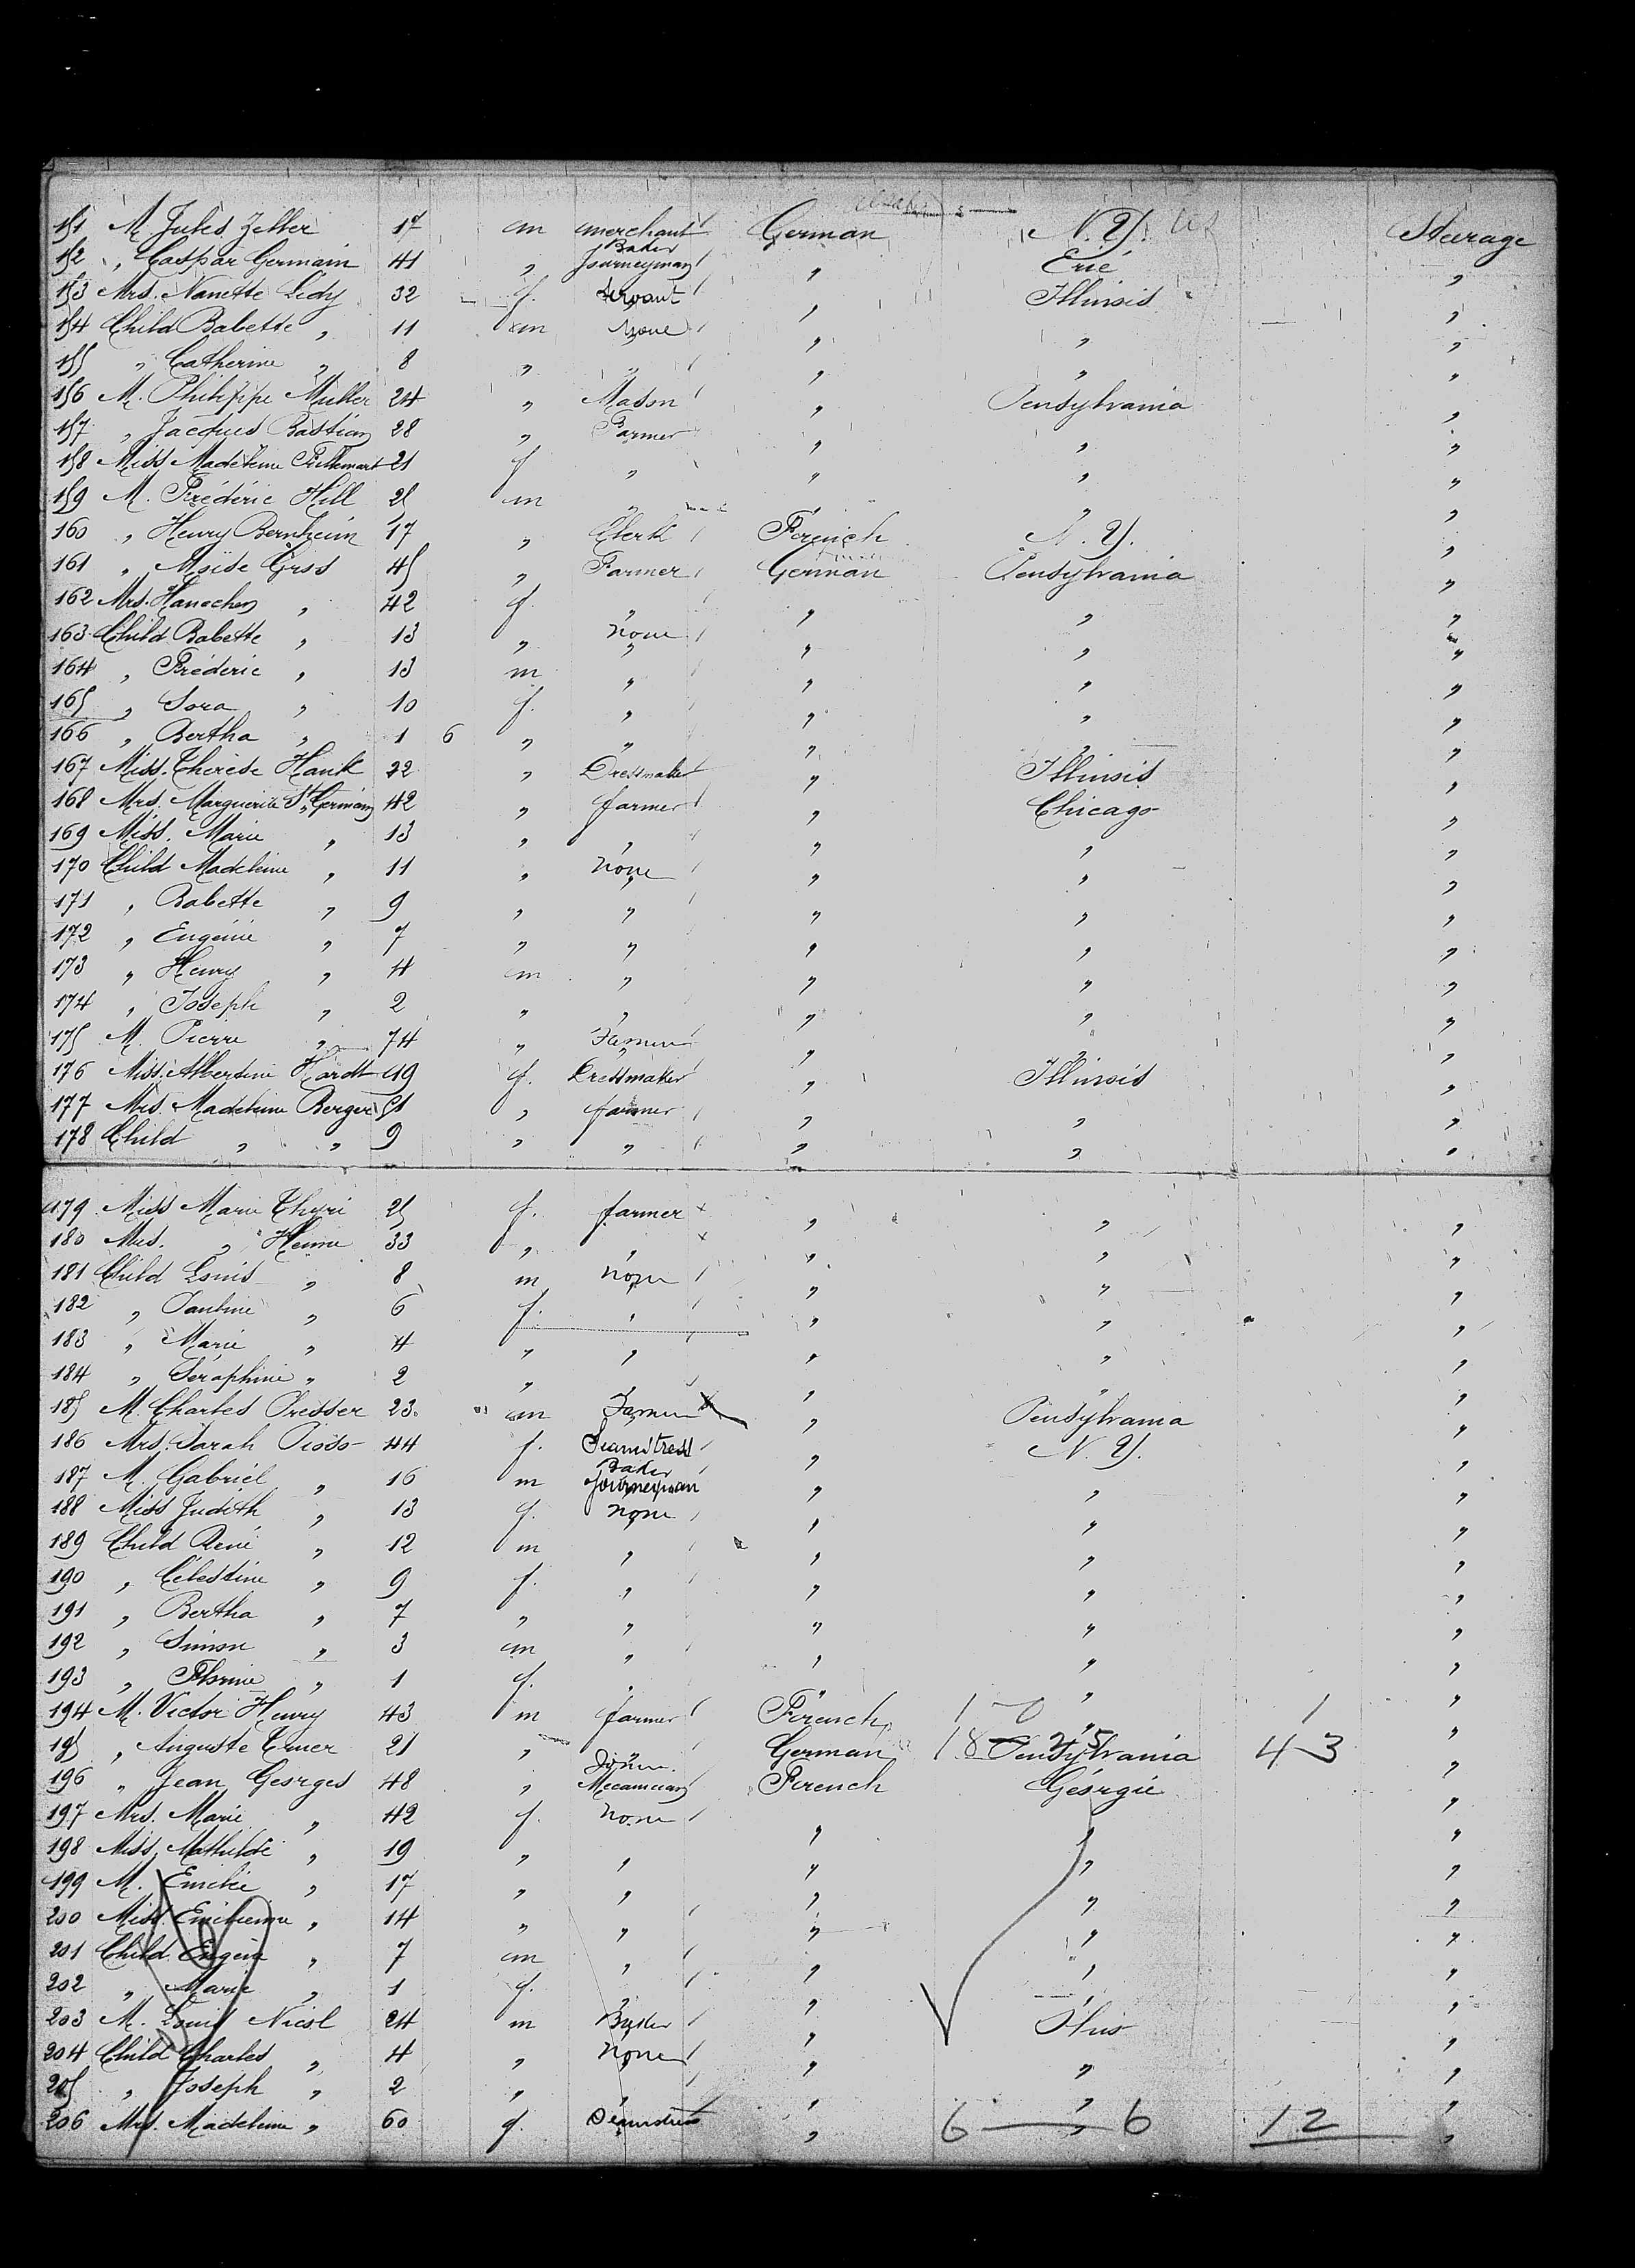 151 M. Jules Zeller 17 m merchant German N.Y. Steerage
152 " Caspar Germain 41 " Baker Journeyman " Erié "
153 Mrs. Nanette Ledy 32 f. Servant " Illinois "
154 Child Babette " 11 m None " " "
155 " Catherine " 8 " " " " "
156 M. Philippe Muller 24 " Mason " Pensylvania "
157 " Jacques Bastian 28 " Farmer " " "
158 Miss Madeleine 21 f " " " "
159 M. Frédéric Hill 25 m " " " "
160 " Henry Bernheim 17 " Clerk French N.Y. "
161 " Moïse Gros 45 " Farmer German Pensylvania "
162 Mrs. Hanechen " 42 f. " " " "
163 Child Babette " 13 " none " " "
164 " Fréderic " 13 m " " " "
165 " Sora " 10 f. " " " "
166 " Bertha " 1 6 " " " " "
167 Miss. Thérèse Hauk 22 " Dressmaker " Illinois "
168 Mrs. Marguerite St. Germain 42 " farmer " Chicago "
169 Miss. Marie " 13 " " " " "
170 Child Madeleine " 11 " none " " "
171 " Babette " 9 " " " " "
172 " Eugénie " 7 " " " " "
173 " Henry " 4 m " " " "
174 " Joseph " 2 " " " " "
175 M. Pierre " 74 " Farmer " " "
176 Miss. Albertine Hardt 19 f. Dressmaker " Illinois "
177 Mrs. Madeleine Berger 51 " farmer " " "
178 Child " " 9 " " " " "
179 Miss Marie Thyri 25 f. farmer " " "
180 Mrs. " Heime 33 " " " " "
181 Child Louis " 8 m none " " "
182 " Pauline " 6 f. " " " "
183 " Marie " 4 " " " " "
184 " Séraphine " 2 " " " " "
185 M. Charles Presser 23 m Farmer " Pensylvania "
186 Mrs. Sarah Picso 44 f. Seamstress " N.Y. "
187 M. Gabriel " 16 m Baker Journeyman " " "
188 Miss Judith " 13 f. none " " "
189 Child René " 12 m " " " "
190 " Célestine " 9 f. " " " "
191 " Bertha " 7 " " " " "
192 " Simon " 3 m " " " "
193 " Florine " 1 f. " " " "
194 M. Victor Henry 43 m farmer French " " 1 0 1
195 " Auguste 21 " " German Pensylvania " 18 25 43
196 " Jean Georges 48 " Mecanician French Géorgie "
197 Mrs. Marie " 42 f. none " " "
198 Miss. Mathilde " 19 " " " " "
199 M. Emilie " 17 " " " " "
200 Miss. " 14 " " " " "
201 Child Eugène " 7 m " " " "
202 " Marie " 1 f. " " " "
203 M. Louis Nicol 24 m " Ohio "
204 Child Charles " 4 " none " " "
205 " Joseph " 2 " " " " "
206 Mrs. Madeleine " 60 f. Seamstress " " " 6 — 6 12